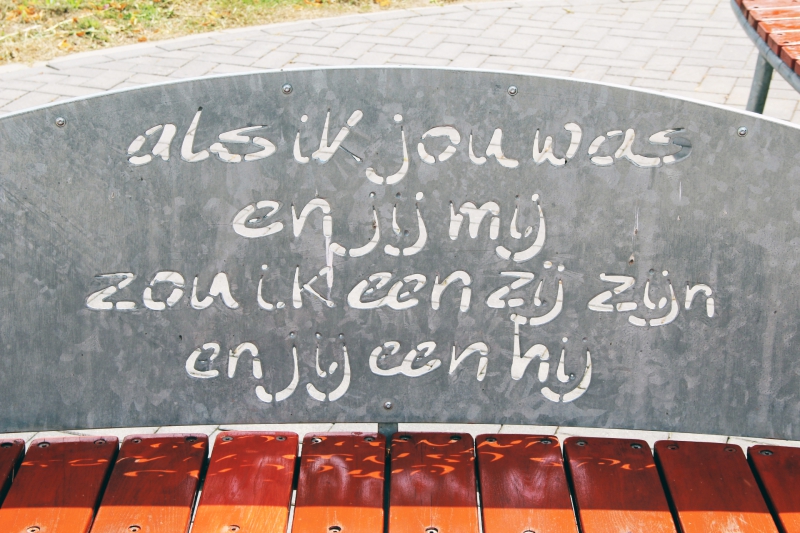 als ik jou was
en jij mij
zou ik een zij zijn
en jij een hij